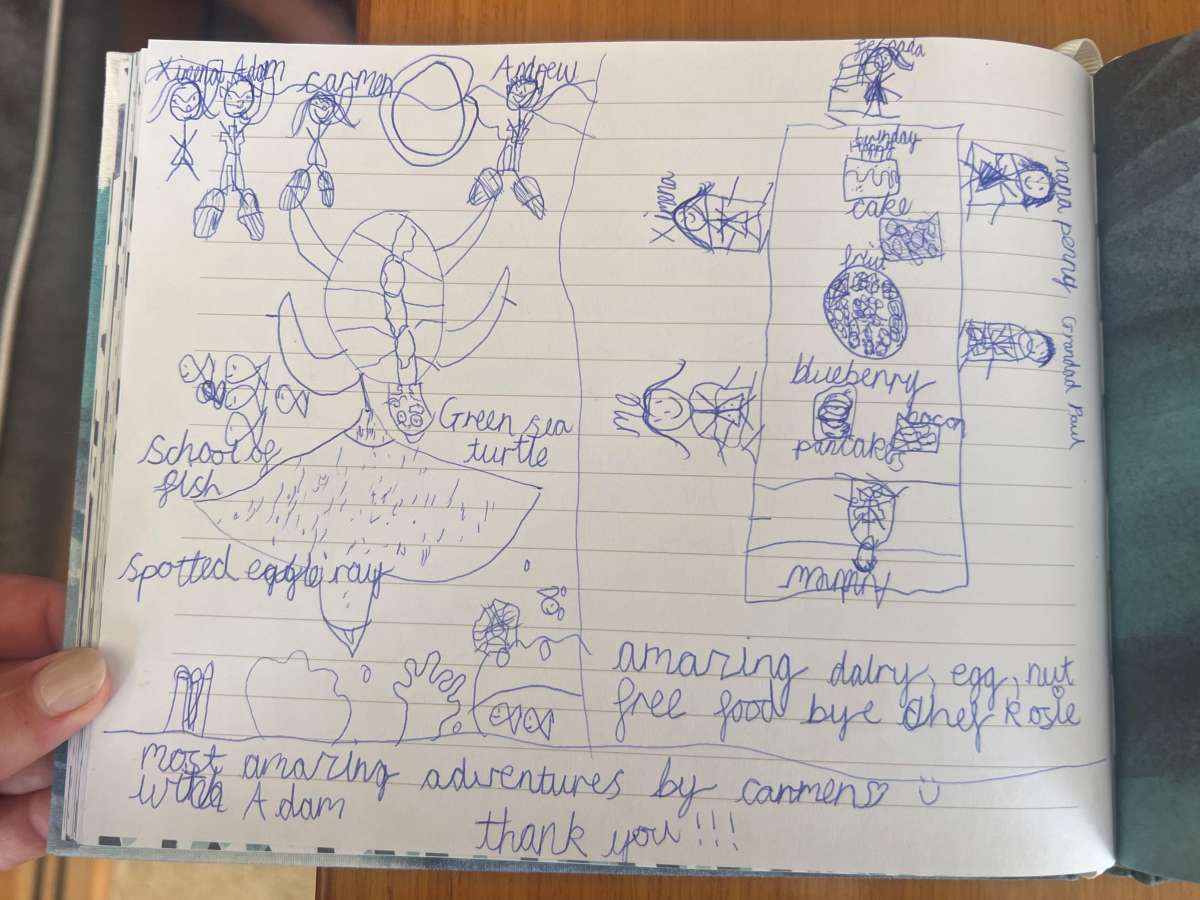 Ximena Adam
carmen
Andrew
Green sea
turtle
School of
fish
Spotted eagle ray
birthday
Happy
cake
fruit
blueberry
pancakes
bacon
Ximena
me
nana penny
Grandad Paul
Andrew
amazing dairy, egg, nut
free food bye chef Rosie
most amazing adventures by carmen
with Adam
thank you!!!